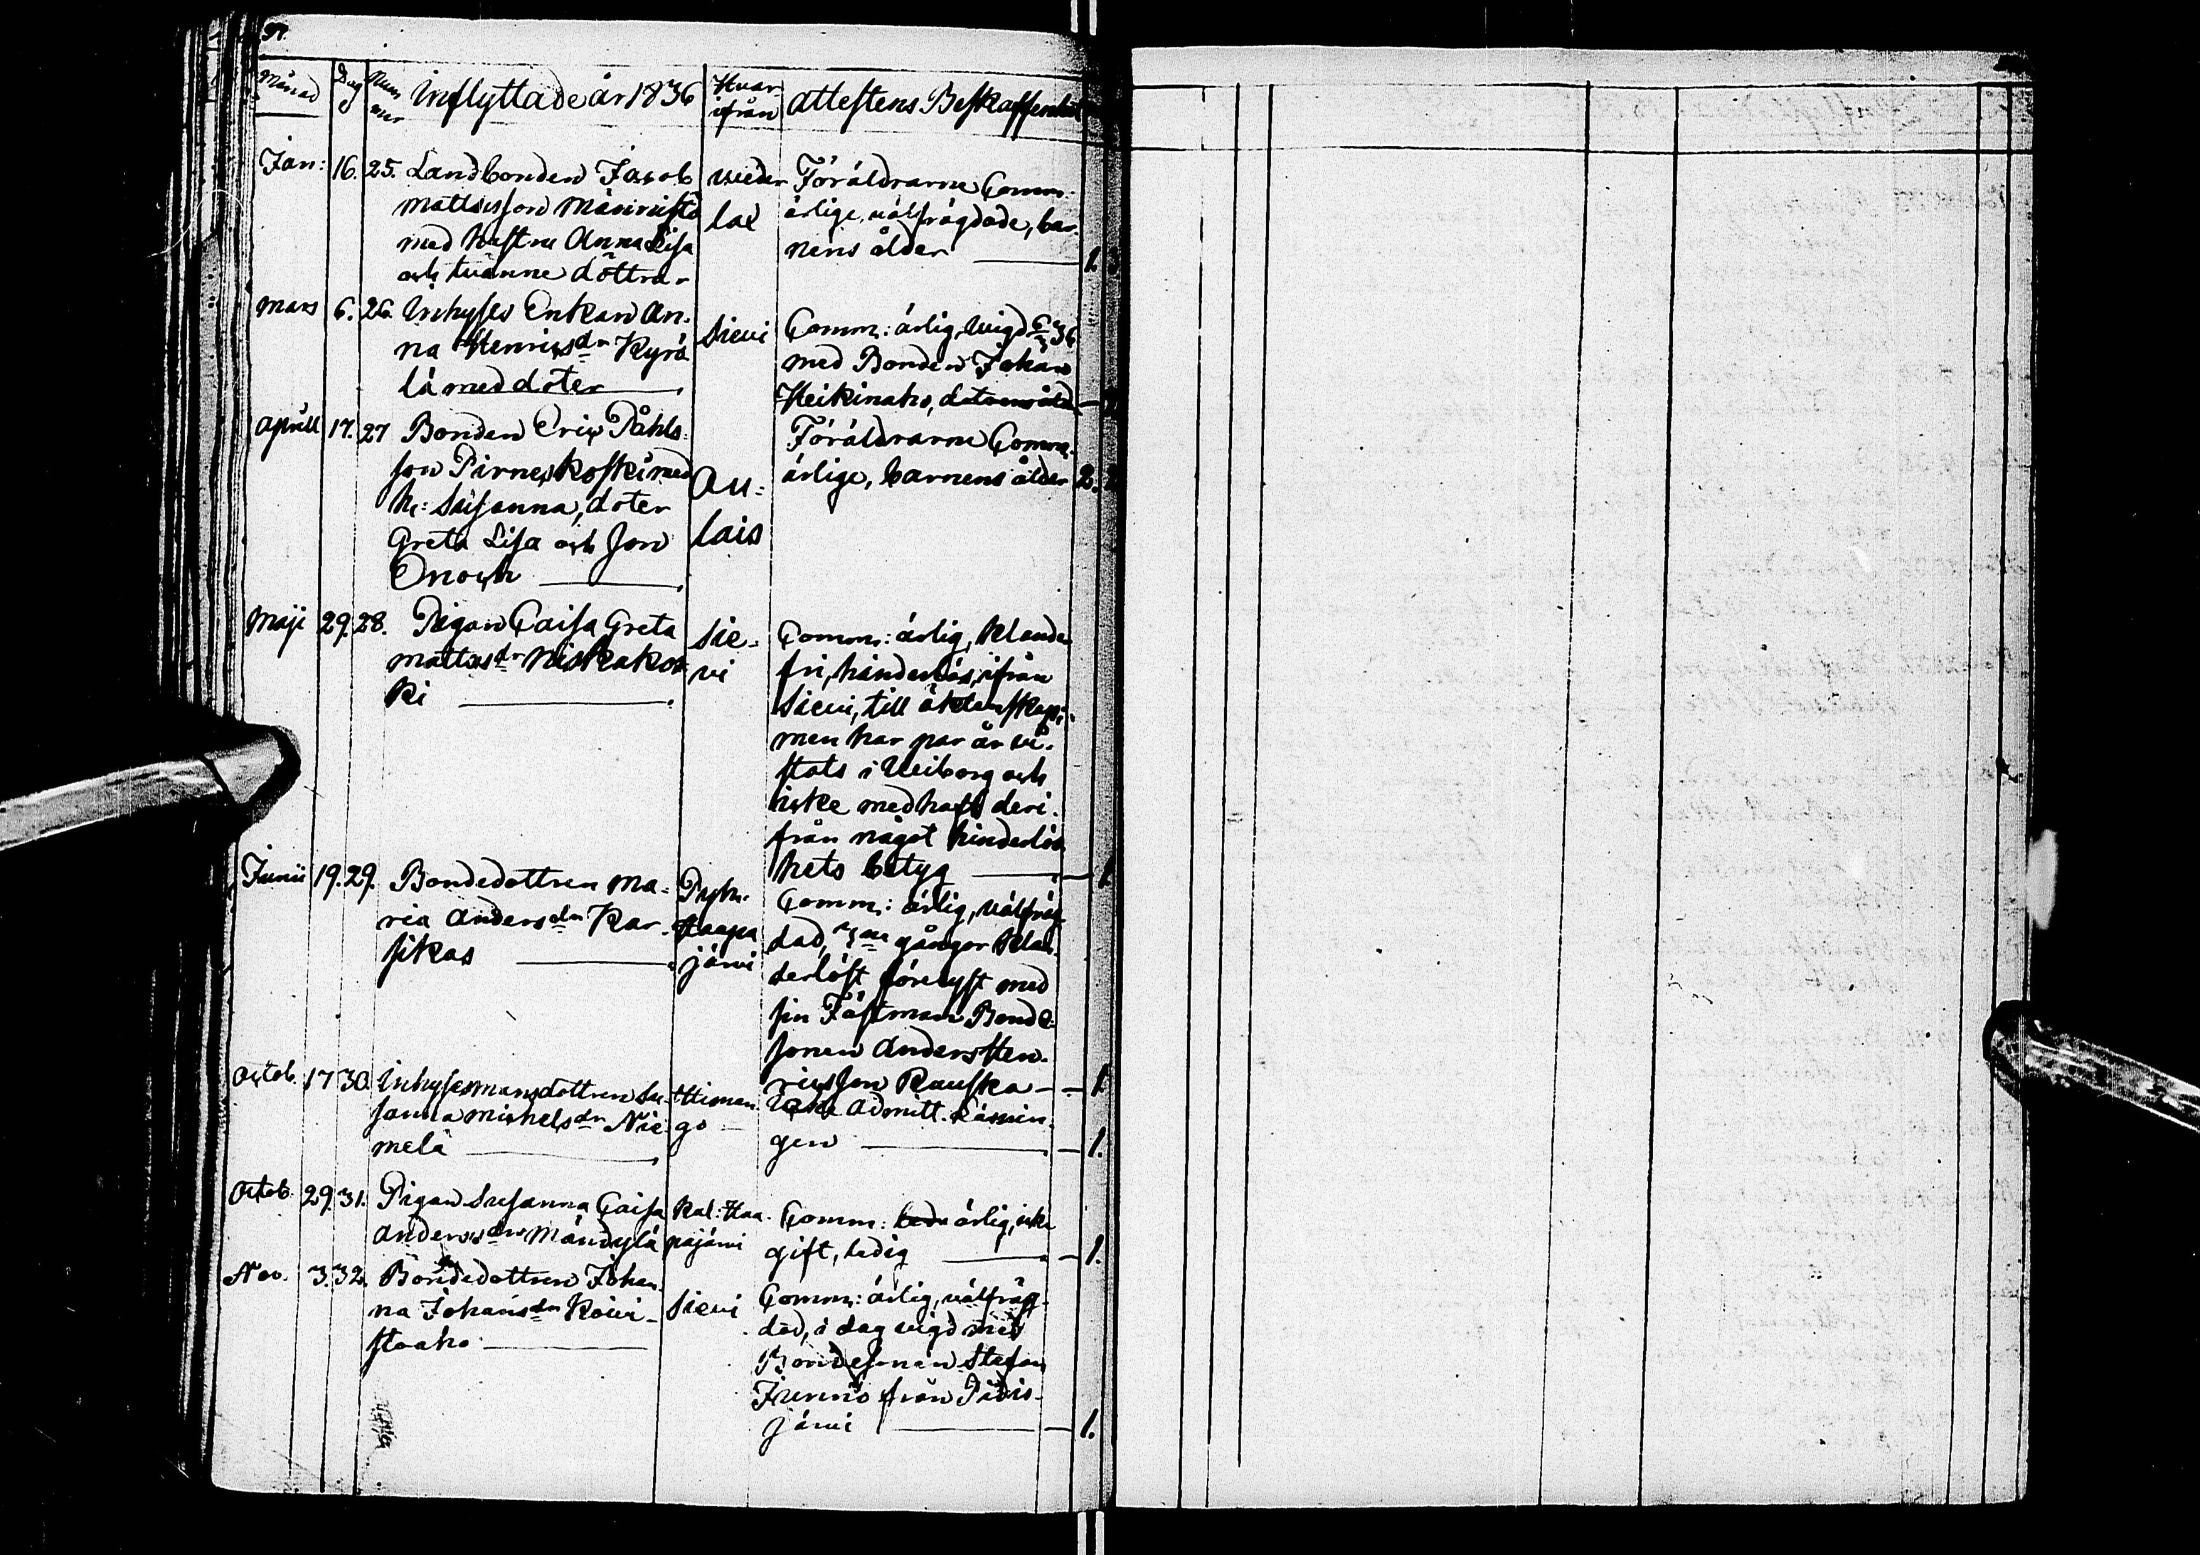 Månad Dag Num mer Inflyttade år 1836 Hvar ifrån Attestens Beskaffenhet
Jan: 16. 25. Landbonden Jacob
Mattsson
med hustru Anna Lisa
och tvänne döttrar
Föräldrarne Comm:
ärlige, välfrägdade, bar
nens ålder 1. 3.
Mars 6. 26. Inhyses Enkan An-
na Henricsdr Kyrö
lä med doter
Sievi
Comm: ärlig, wigd 6/3 36
med Bonden Johan
Heikinaho, dotrens ålder
Aprill 17. 27 Bonden Eric Påhls-
son Pirneskoski med
h: Susanna, doter
Greta Lisa och son
Enoch
Au-
lais
Föräldrarne Comm.
ärlige, barnens ålder 2. 2
Maji 29. 28. Pigan Caisa Greta
Mattsdr Niskakos
ki
Sie-
vi
Comm: ärlig, klander
fri, hinderlös, ifrån
Sievi, till äktenskap;
men har par år vi-
stats i Weiborg och
icke medhaft deri-
från något hinderlös
hets betyg 1
Junii 19. 29. Bondedottren Ma-
ria Andersdr Kar-
sikas
Pyh.
Haapa
järwi
Comm: ärlig, välfräg
dad, 3ne gångor klan-
derlöst förelyst med
sin Fästman Bonde-
sonen Anders Hen-
ricsson Rauska 1
Octob. 17 30. Inhysesmansdottren Su-
sanna Michelsdr Nie
melä
Himan-
go
Icke Admitt. Läsnin-
gen 1.
Octob. 29. 31. Pigan Susanna Caisa
Andersdr Mändylä
Kal: Haa-
pajärwi
Comm: ärlig, icke
gift, ledig 1.
Nov. 3. 32. Bondedottren Johan-
na Johansdr Koivi-
stoaho
Sievi
Comm: ärlig, välfräg-
dad, i dag vigd med
Bondesonen Stefan
Junno från Pidis-
järwi 1.